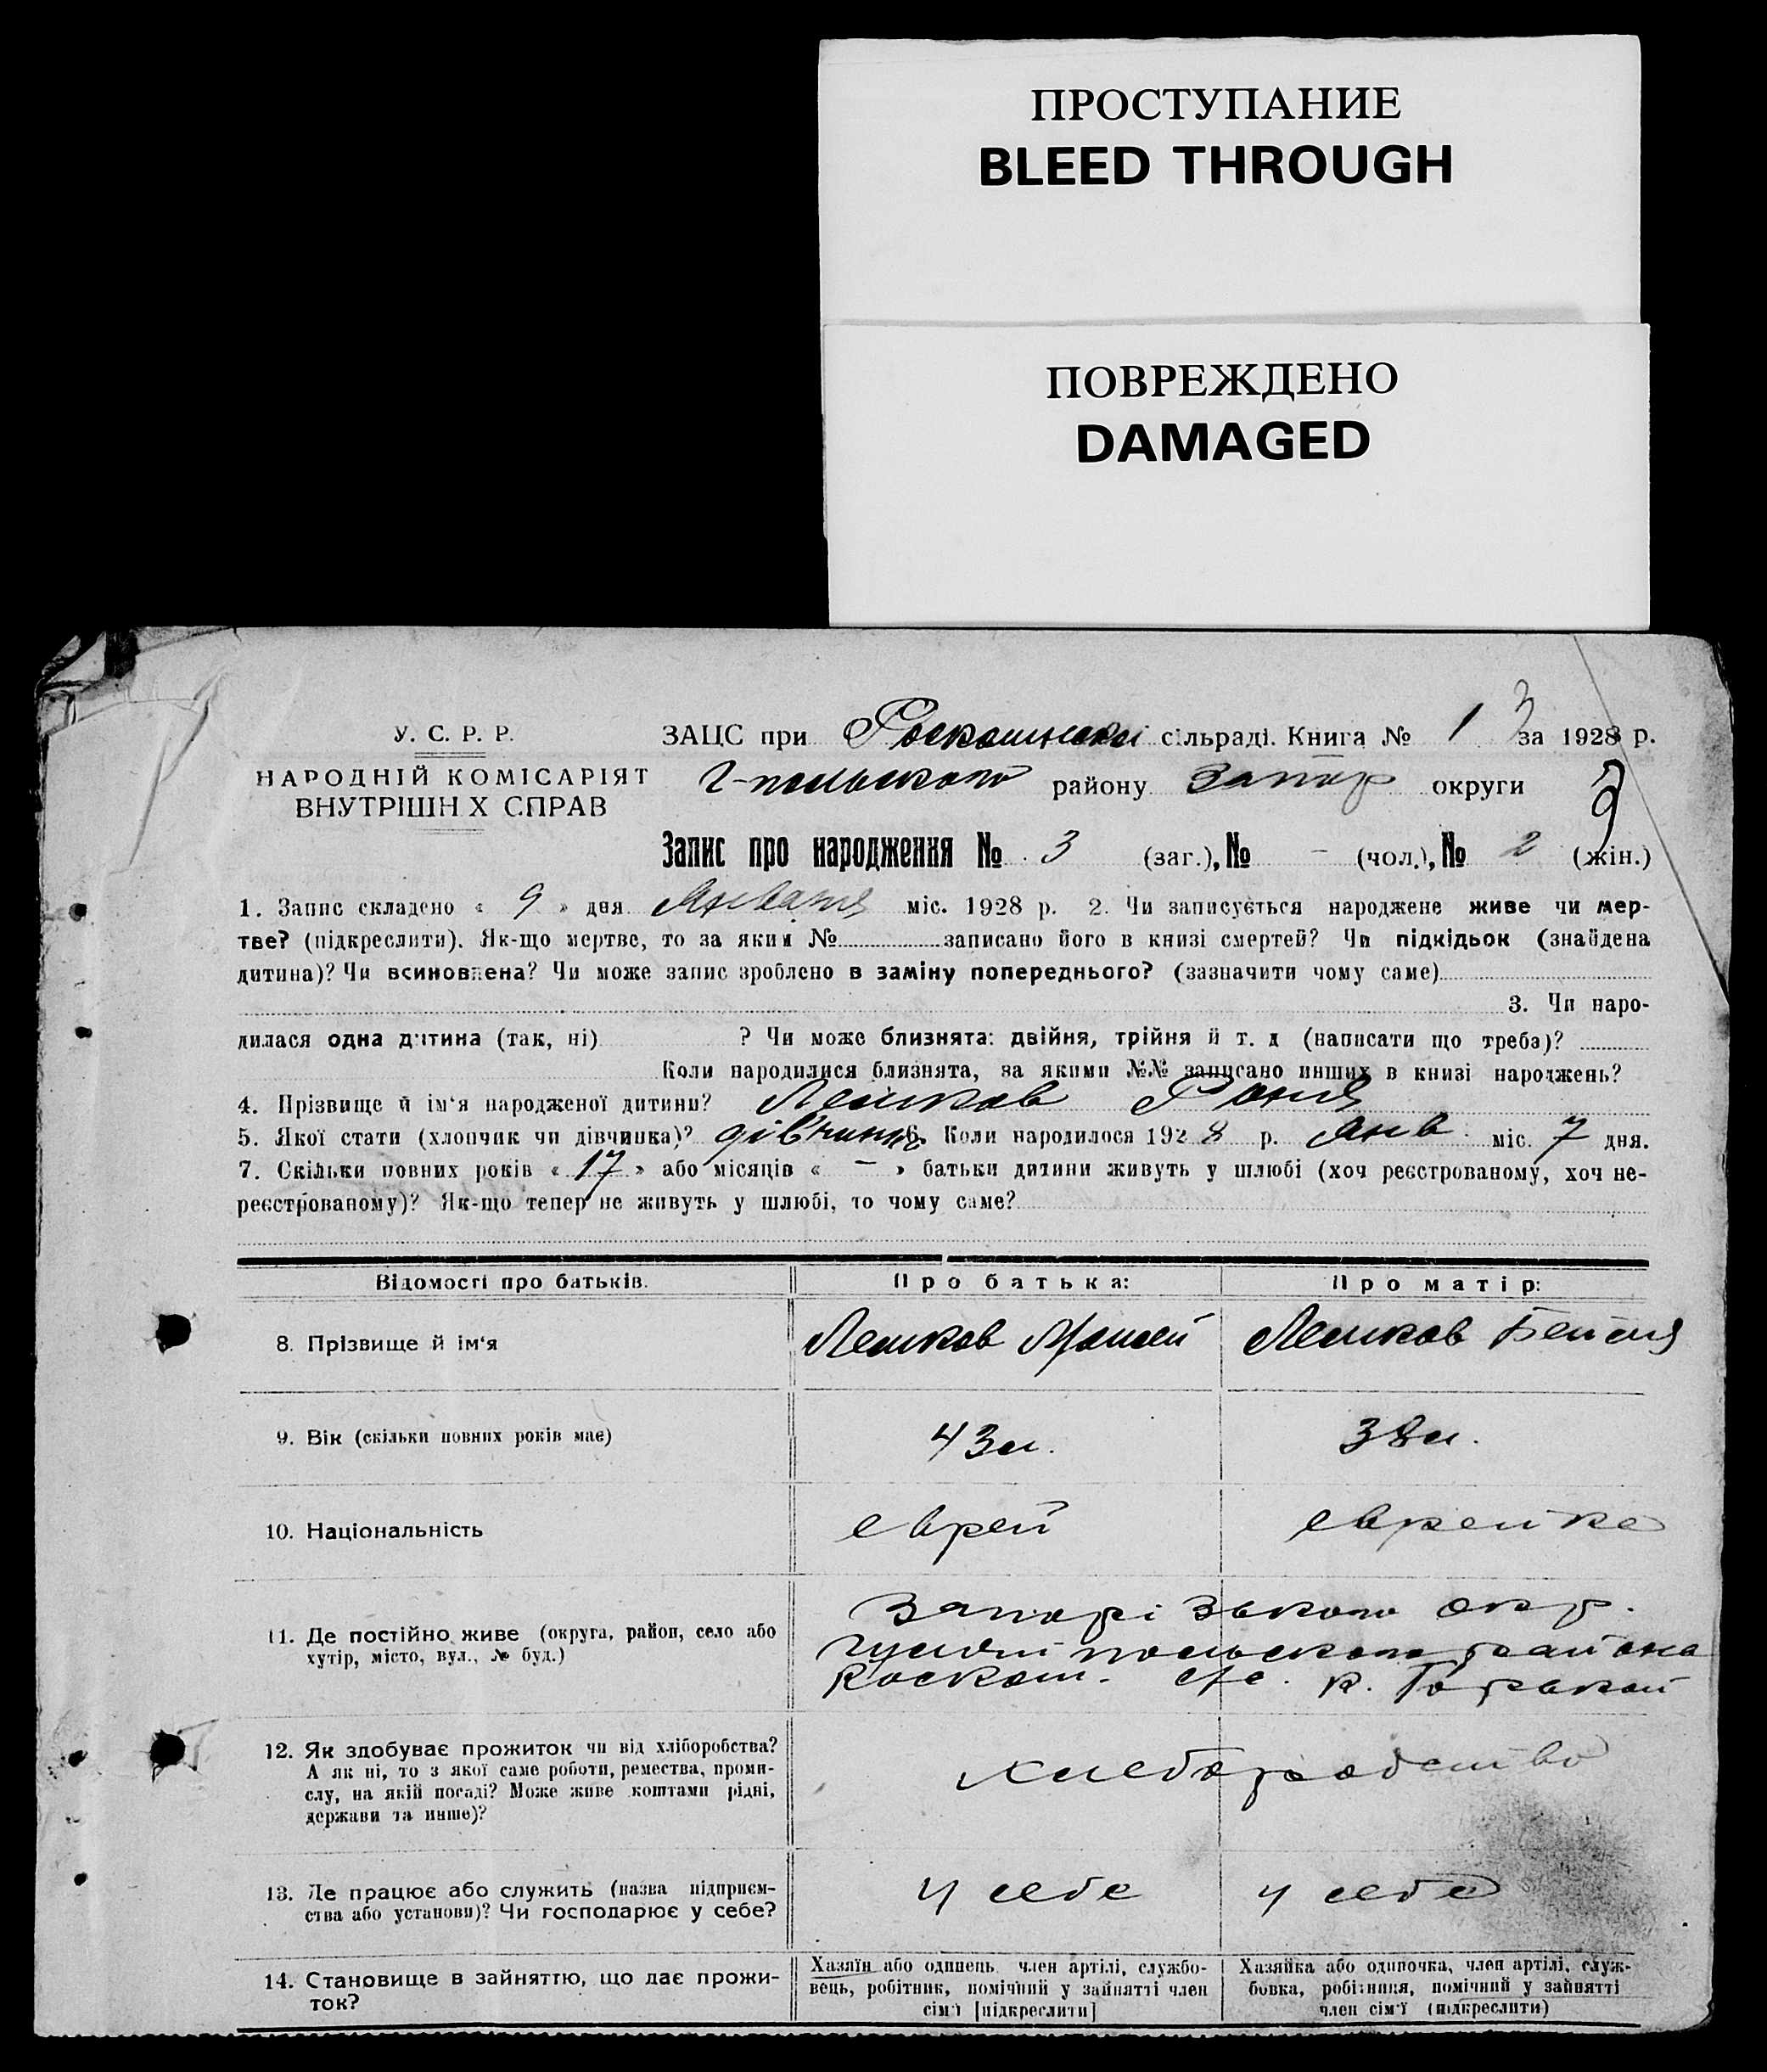 ПРОСТУПАНИЕ
BLEED THROUGH
ПОВРЕЖДЕНО
DAMAGED
У. С. Р. Р.
НАРОДНІЙ КОМІСАРІЯТ
ВНУТРІШН Х СПРАВ
ЗАЦС при Роскошной сільраді. Книга № 1 3 за 1928 р.
Г-польского району Запор округи
Запис про народження № 3 (заг.), № - (чол.), № 2 (жін.)
1. Запис складено « 9 » дня Января міс. 1928 р. 2. Чи записується народжене живе чи мер-
тве? (підкреслити). Як-що мертве, то за яким № записано його в книзі смертей? Чи підкідьок (знайдена
дитина)? Чи всиновлена? Чи може запис зроблено в заміну попереднього? (зазначити чому саме)
3. Чи наро-
дилася одна дитина (так, ні) ? Чи може близнята: двійня, трійня й т. д (написати що треба)?
Коли народилися близнята, за якими №№ записано инших в книзі народжень?
4. Прізвище й ім'я народженої дитини? Лешков Роня
5. Якої стати (хлопчик чи дівчинка)? дівчинка 6. Коли народилося 1928 р. Янв. міс. 7 дня.
7. Скільки повних років « 17 » або місяців « — » батьки дитини живуть у шлюбі (хоч реєстрованому, хоч не-
реєстрованому)? Як-що тепер не живуть у шлюбі, то чому саме?
Відомості про батьків. Про батька: Про матір:
8. Прізвище й ім'я Лешков Мошей Лешков Бейля
9. Вік (скільки повних років має) 43 л. 38 л.
10. Національність еврей еврейка
11. Де постійно живе (округа, район, село або
хутір, місто, вул., № буд.)
Запорізького окр.
Гуляйпольского района
Роскош. с/с. к. Горькой
12. Як здобуває прожиток чи від хліборобства?
А як ні, то з якої саме роботи, ремества, проми-
слу, на якій посаді? Може живе коштами рідні,
держави та инше)?
хлеборобство
13. Де працює або служить (назва підприєм-
ства або установи)? Чи господарює у себе?
у себе у себе
14. Становище в зайняттю, що дає прожи-
ток?
Хазяїн або одинець член артілі, службо-
вець, робітник, помічний у зайнятті член
сім'ї [підкреслити]
Хазяйка або одиночка, член артілі, служ-
бовка, робітниця, помічний у зайнятті
член сім'ї (підкреслити)